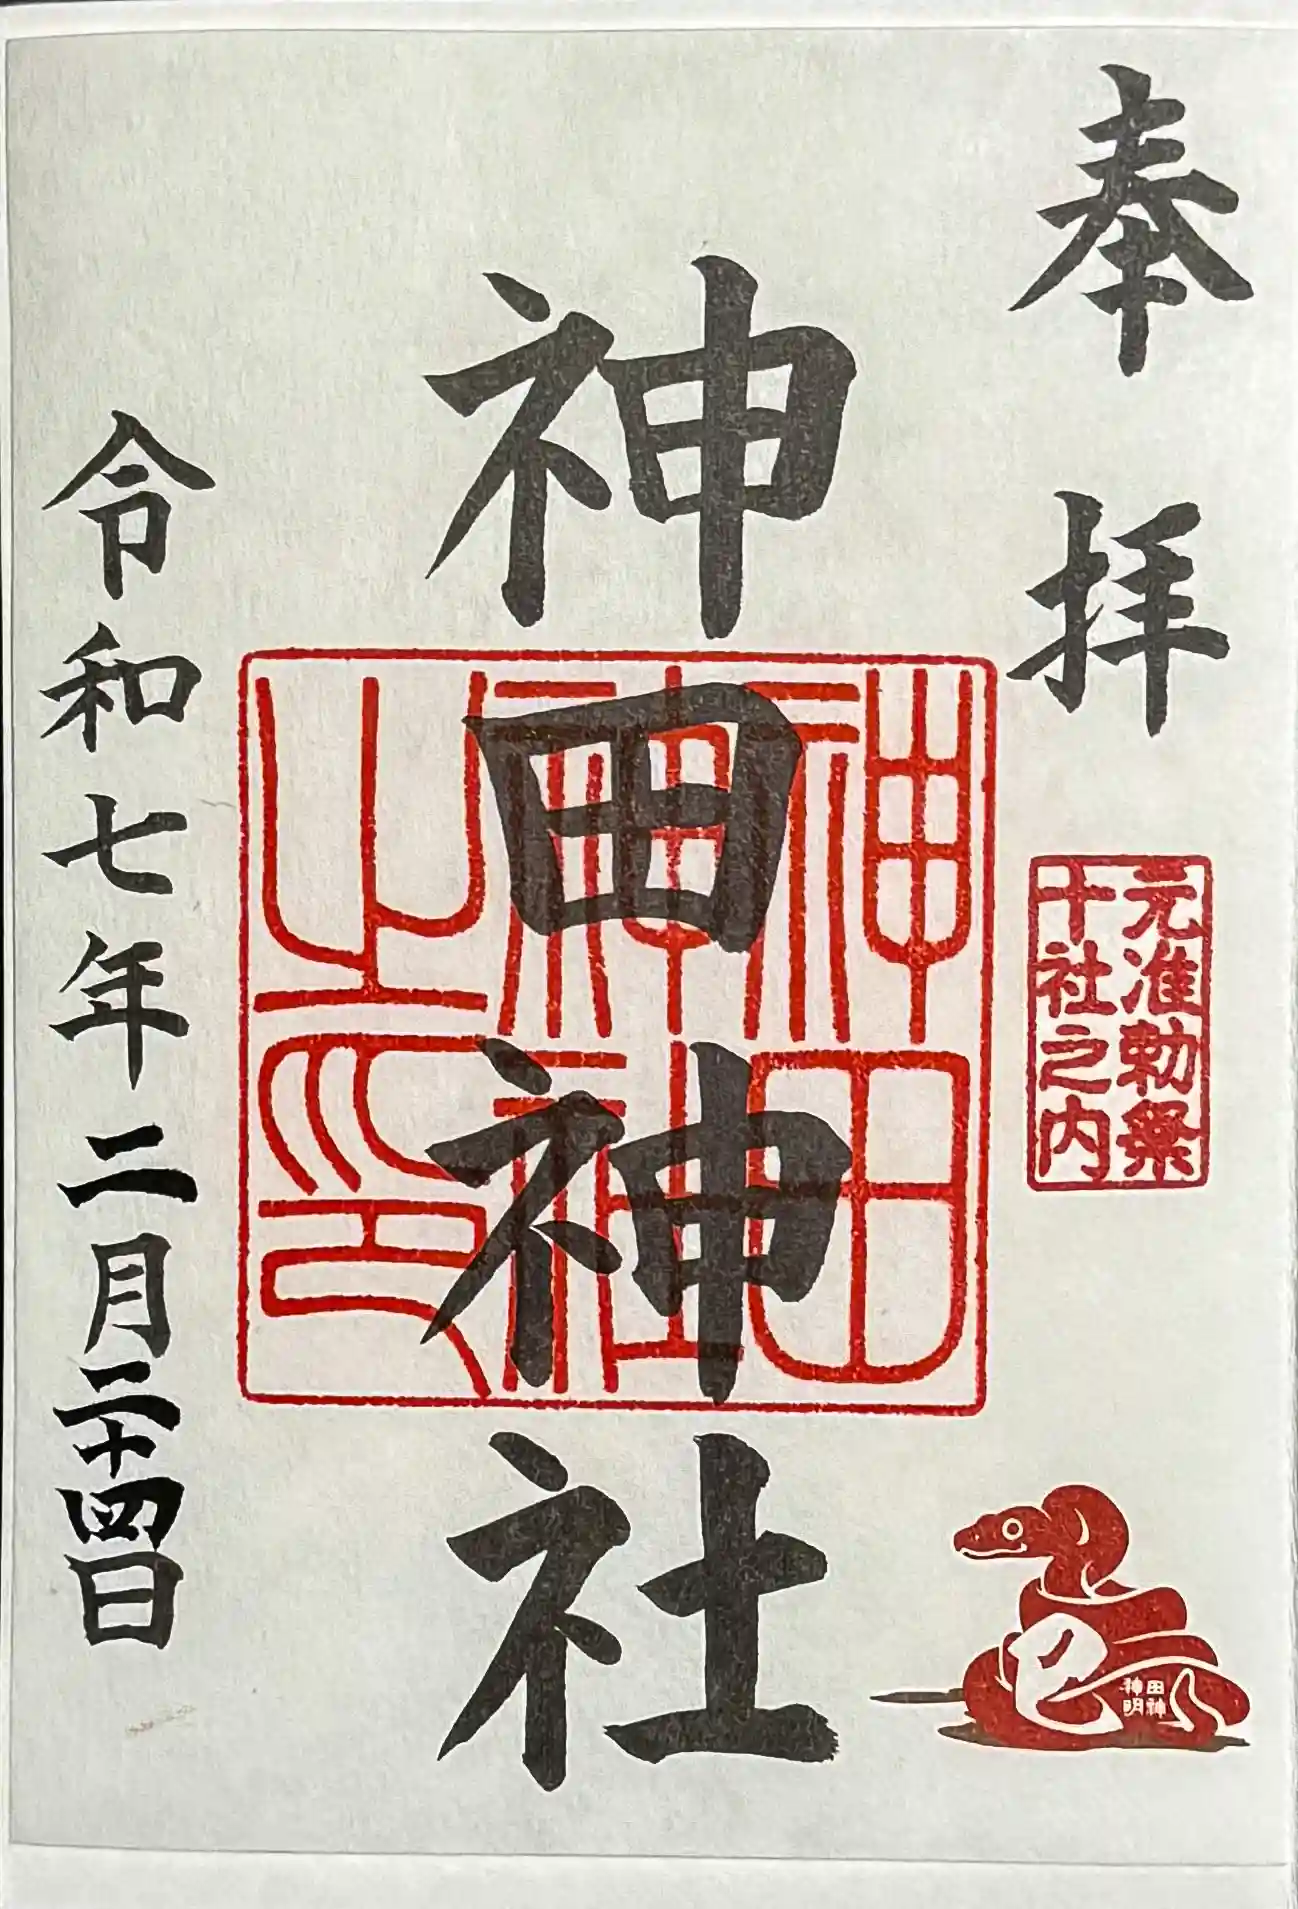 奉拝
元准勅祭
十社之内
巳
田神
神明
神田神社
神田
神社
之印
令和七年二月二十四日